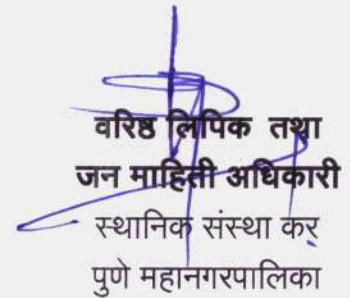 वरिष्ठ लिपिक तथा
जन माहिती अधिकारी
स्थानिक संस्था कर
पुणे महानगरपालिका